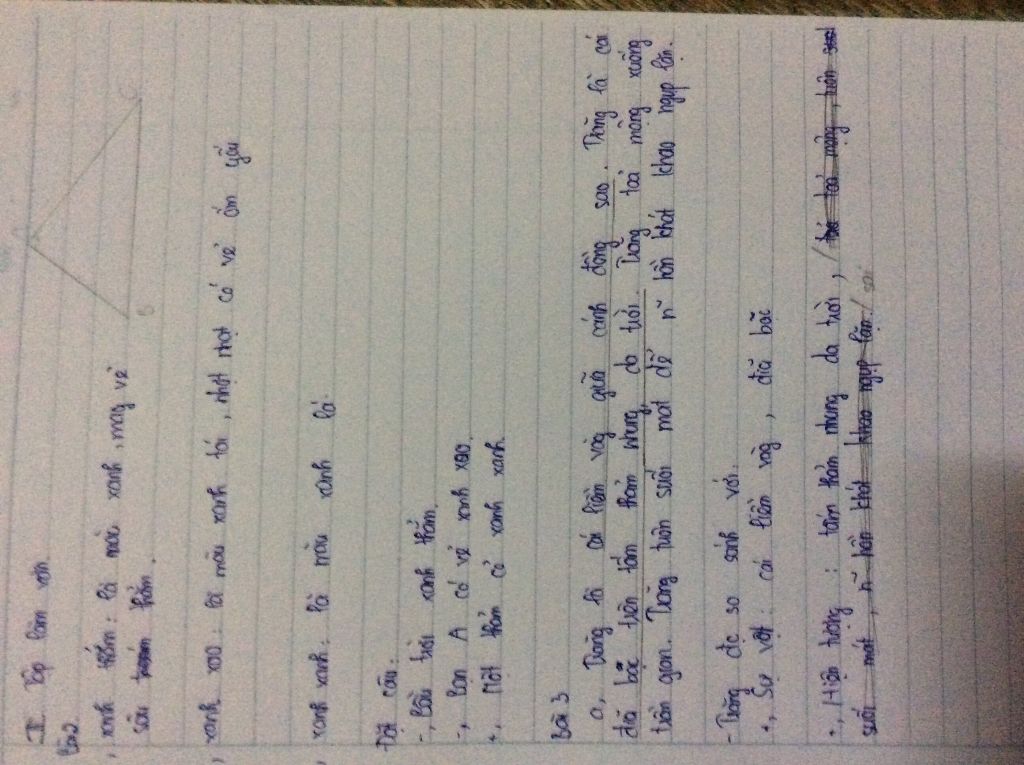 II. Tập làm văn
Bài 2
, xanh thẳm: là màu xanh, mang vẻ
sâu thẳm.
, xanh xao: là màu xanh tái, nhợt nhạt có vẻ ốm yếu
, xanh xanh: là màu xanh lá.
Đặt câu:
-, Bầu trời xanh thẳm.
-, Bạn A có vẻ xanh xao.
+, Một thảm cỏ xanh xanh.
Bài 3
a, Trăng là cái liềm vàng giữa cánh đồng sao. Trăng là cái
đĩa bạc trên tấm thảm nhung da trời. Trăng toả mộng xuống
trần gian. Trăng tuôn suối mát để n~ hồn khát khao ngụp lặn.
- Trăng đc so sánh với.
+, Sự vật: cái liềm vàng, đĩa bạc
+, Hiện tượng: tấm thảm nhung da trời, / toả mộng,
suối mát, n~ hồn khát khao ngụp lặn / sai
A
B
C